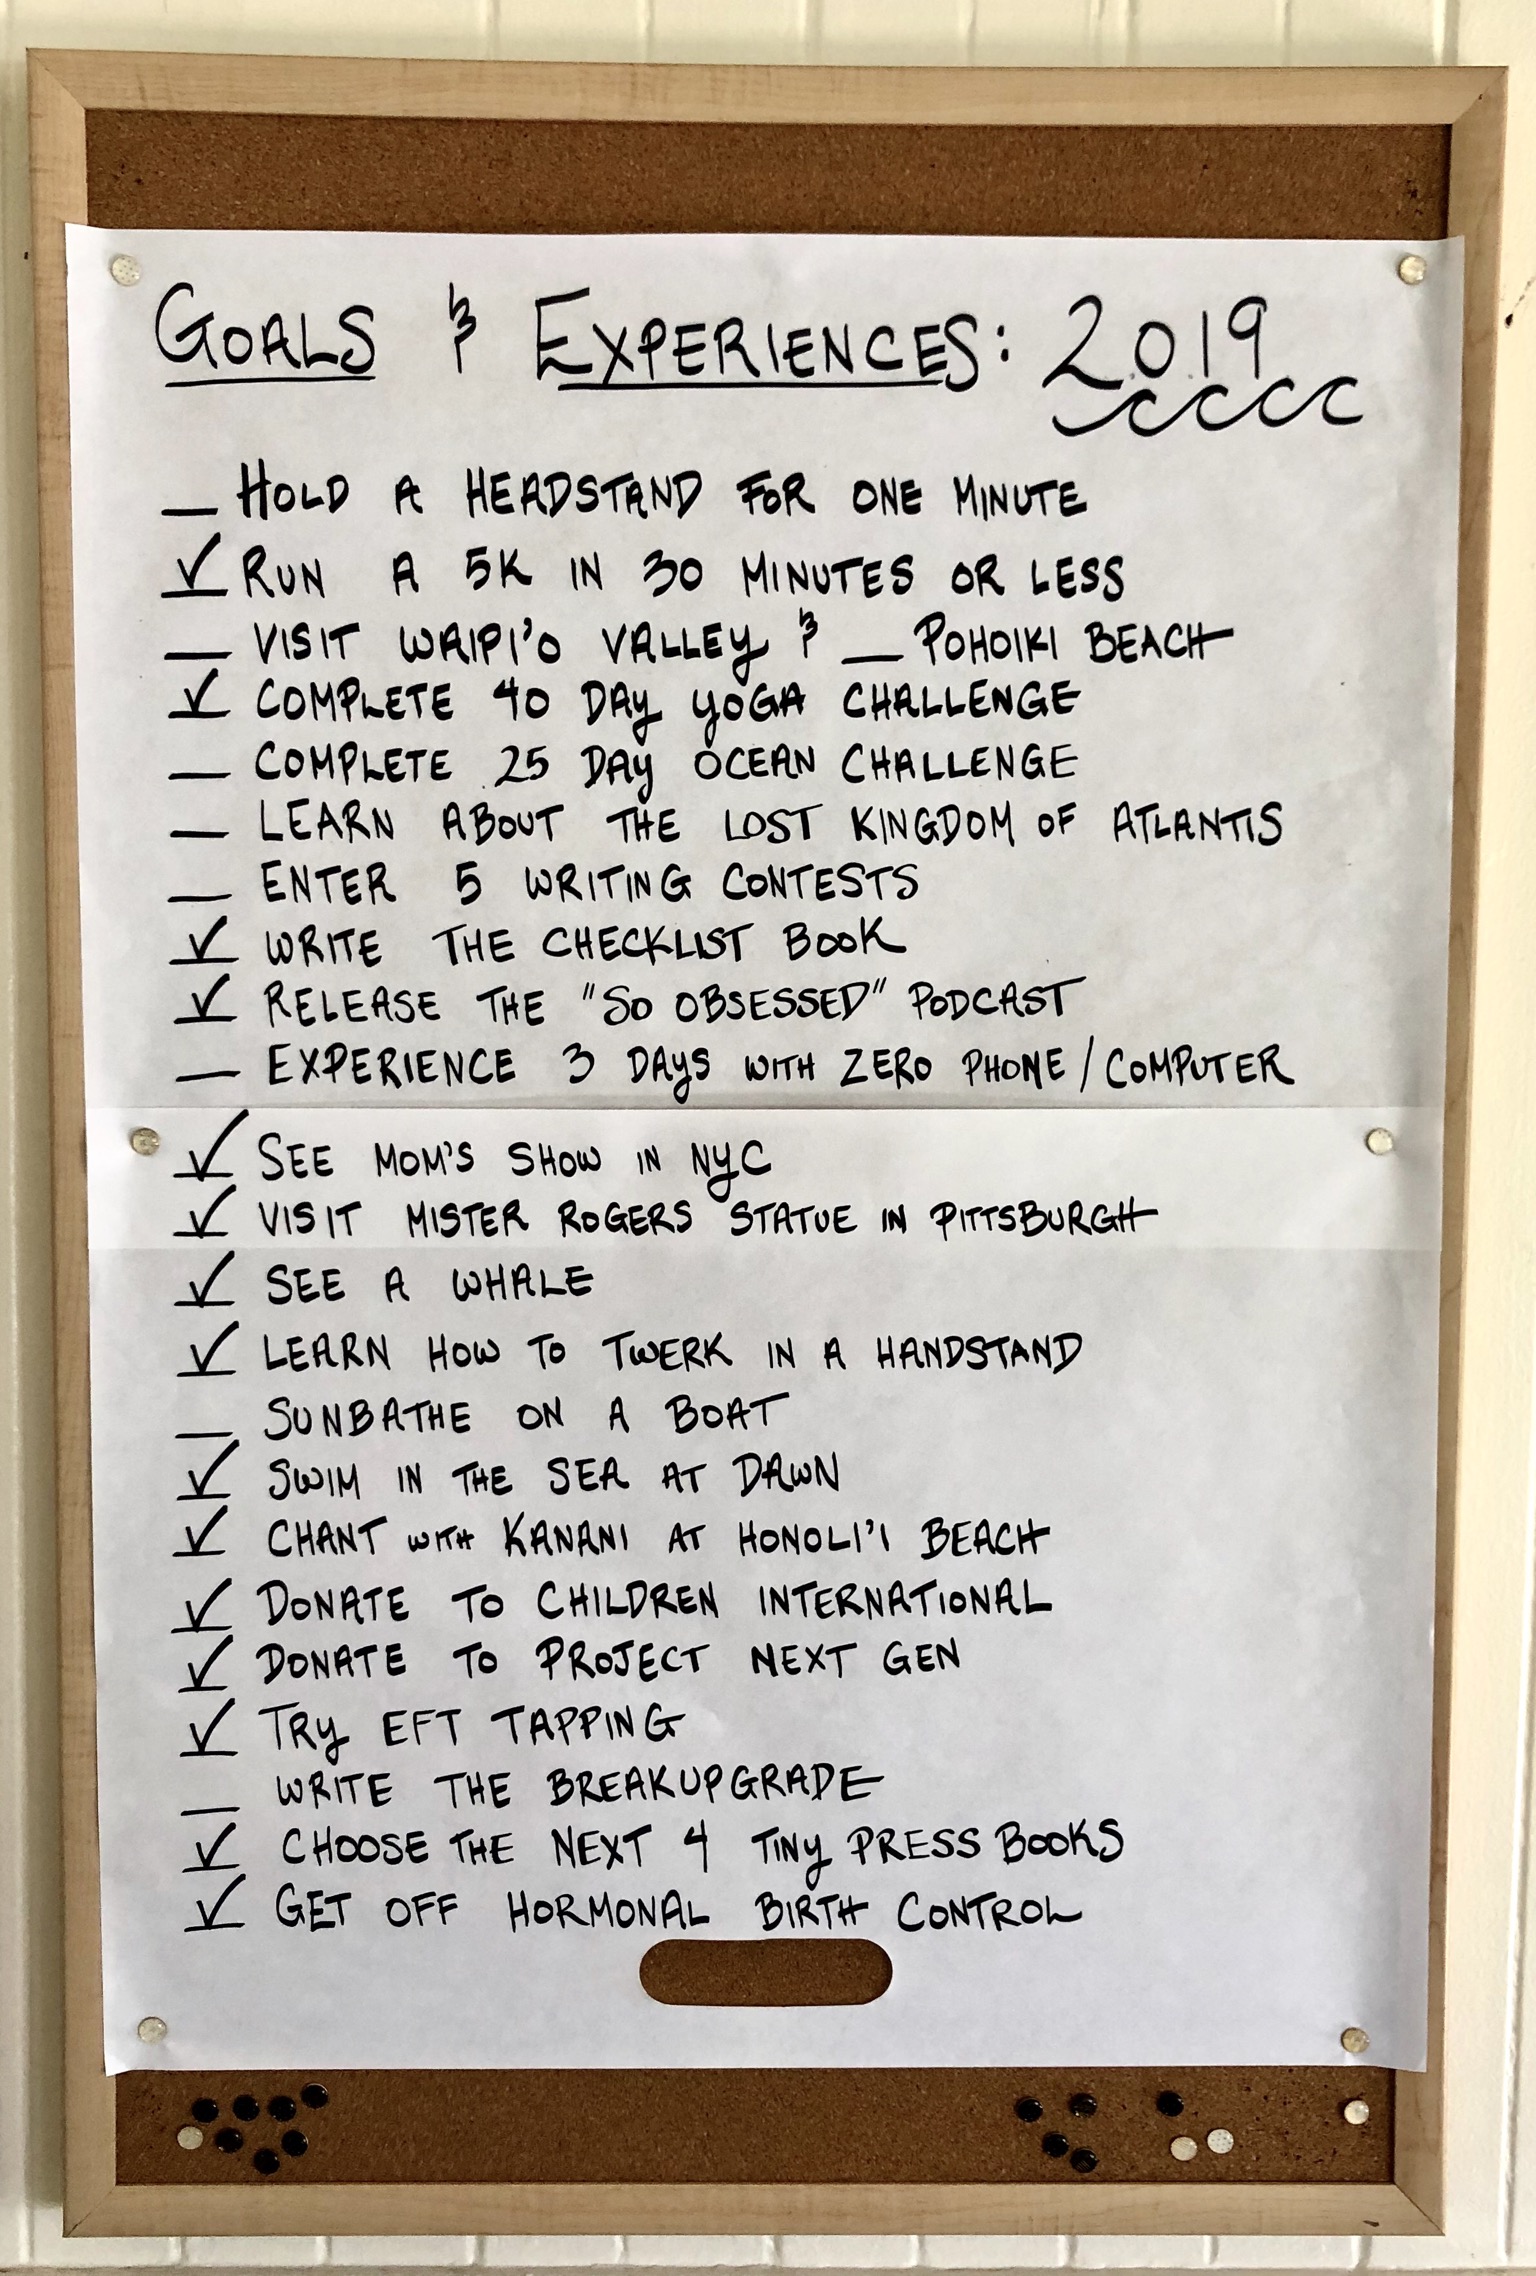 GOALS & EXPERIENCES: 2019
__ HOLD A HEADSTAND FOR ONE MINUTE
✓ RUN A 5K IN 30 MINUTES OR LESS
__ VISIT WAIPI'O VALLEY & __ POHOIKI BEACH
✓ COMPLETE 40 DAY YOGA CHALLENGE
__ COMPLETE 25 DAY OCEAN CHALLENGE
__ LEARN ABOUT THE LOST KINGDOM OF ATLANTIS
__ ENTER 5 WRITING CONTESTS
✓ WRITE THE CHECKLIST BOOK
✓ RELEASE THE "SO OBSESSED" PODCAST
__ EXPERIENCE 3 DAYS WITH ZERO PHONE/COMPUTER
✓ SEE MOM'S SHOW IN NYC
✓ VISIT MISTER ROGERS STATUE IN PITTSBURGH
✓ SEE A WHALE
✓ LEARN HOW TO TWERK IN A HANDSTAND
__ SUNBATHE ON A BOAT
✓ SWIM IN THE SEA AT DAWN
✓ CHANT WITH KANANI AT HONOLI'I BEACH
✓ DONATE TO CHILDREN INTERNATIONAL
✓ DONATE TO PROJECT NEXT GEN
✓ TRY EFT TAPPING
__ WRITE THE BREAKUPGRADE
✓ CHOOSE THE NEXT 4 TINY PRESS BOOKS
✓ GET OFF HORMONAL BIRTH CONTROL